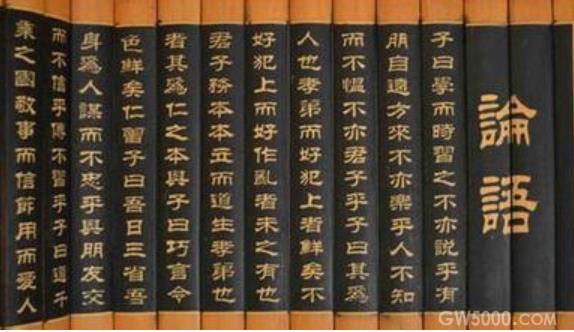 論語
子曰學而時習之不亦說乎有
朋自遠方來不亦樂乎人不知
而不慍不亦君子乎子曰其爲
人也孝弟而好犯上者鮮矣不
好犯上而好作亂者未之有也
君子務本本立而道生孝弟也
者其爲仁之本與子曰巧言令
色鮮矣仁曾子曰吾日三省吾
身爲人謀而不忠乎與朋友交
而不信乎傳不習乎子曰道千
乘之國敬事而信節用而愛人
GW5000.com